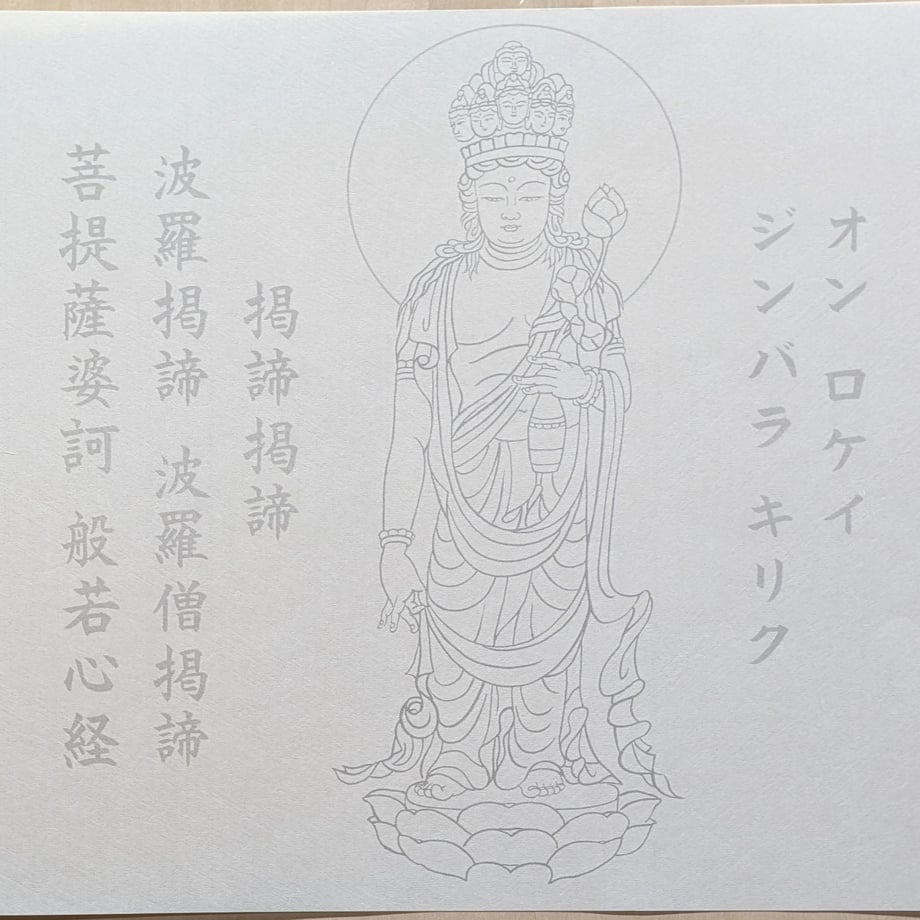 オン ロケイ
ジンバラ キリク
掲諦掲諦
波羅掲諦 波羅僧掲諦
菩提薩婆訶 般若心経